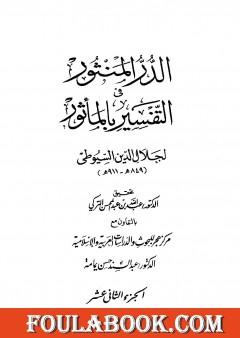 الدر المنثور
في
التفسير بالمأثور
لجلال الدين السيوطي
(٨٤٩هـ - ٩١١هـ)
تحقيق
الدكتور عبد الله بن عبد المحسن التركي
بالتعاون مع
مركز هجر للبحوث والدراسات العربية والإسلامية
الدكتور عبد السند حسن يمامة
الجزء الثاني عشر
FOULABOOK.COM